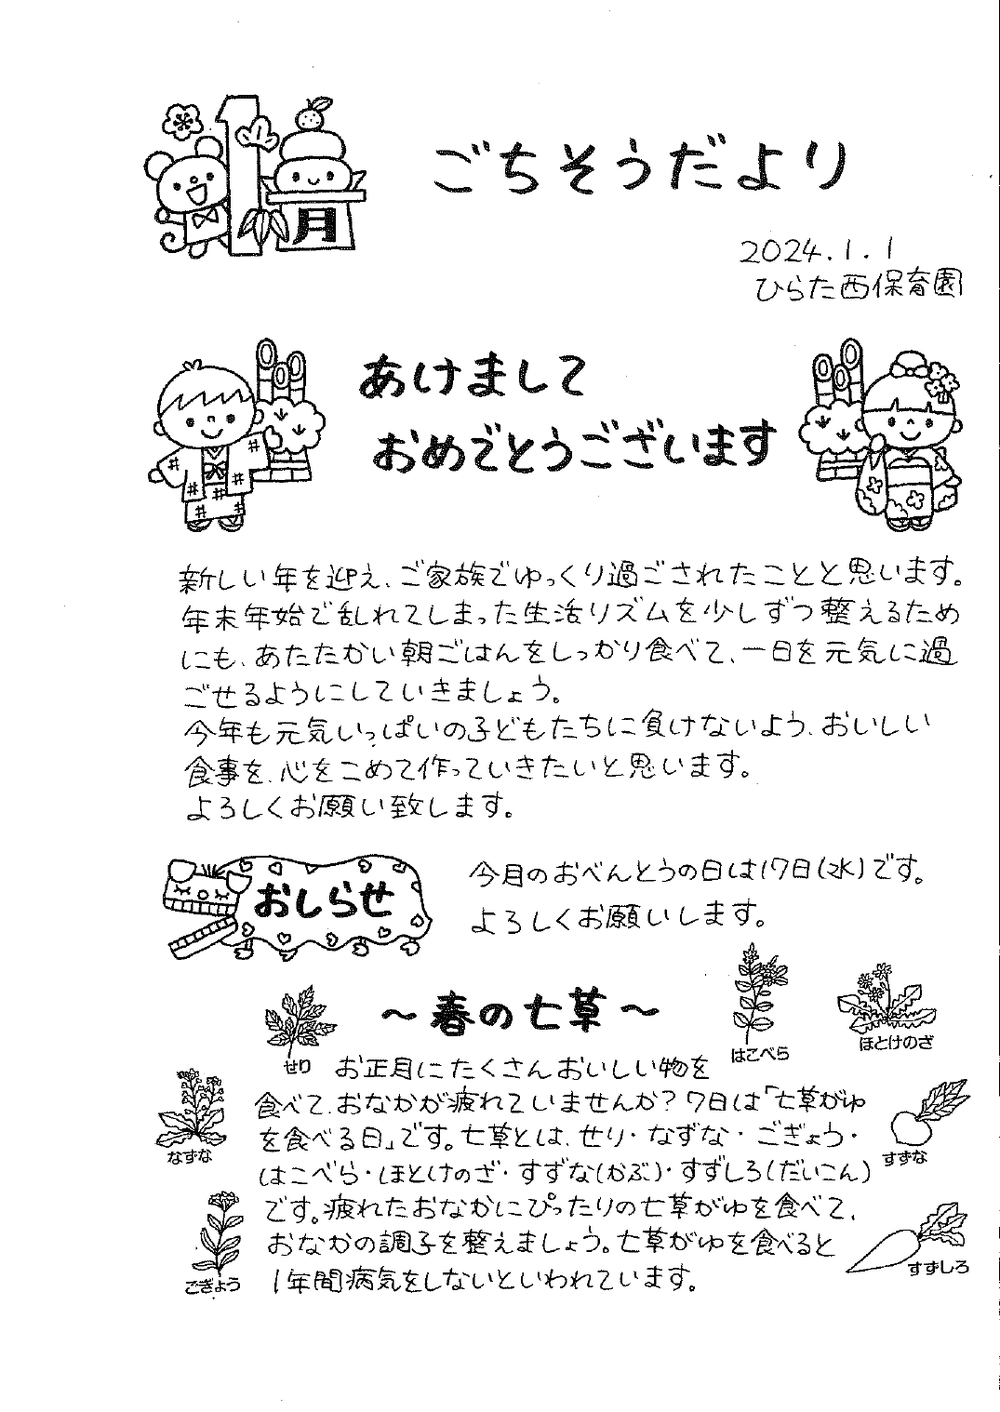 1月
ごちそうだより
2024.1.1
ひらた西保育園
あけまして
おめでとうございます
新しい年を迎え、ご家族でゆっくり過ごされたことと思います。
年末年始で乱れてしまった生活リズムを少しずつ整えるため
にも、あたたかい朝ごはんをしっかり食べて、一日を元気に過
ごせるようにしていきましょう。
今年も元気いっぱいの子どもたちに負けないよう、おいしい
食事を、心をこめて作っていきたいと思います。
よろしくお願い致します。
おしらせ
今月のおべんとうの日は17日(水)です。
よろしくお願いします。
〜春の七草〜
せり
はこべら
ほとけのざ
なずな
すずな
ごぎょう
すずしろ
お正月にたくさんおいしい物を
食べて、おなかが疲れていませんか?7日は「七草がゆ
を食べる日」です。七草とは、せり・なずな・ごぎょう・
はこべら・ほとけのざ・すずな(かぶ)・すずしろ(だいこん)
です。疲れたおなかにぴったりの七草がゆを食べて、
おなかの調子を整えましょう。七草がゆを食べると
1年間病気をしないといわれています。